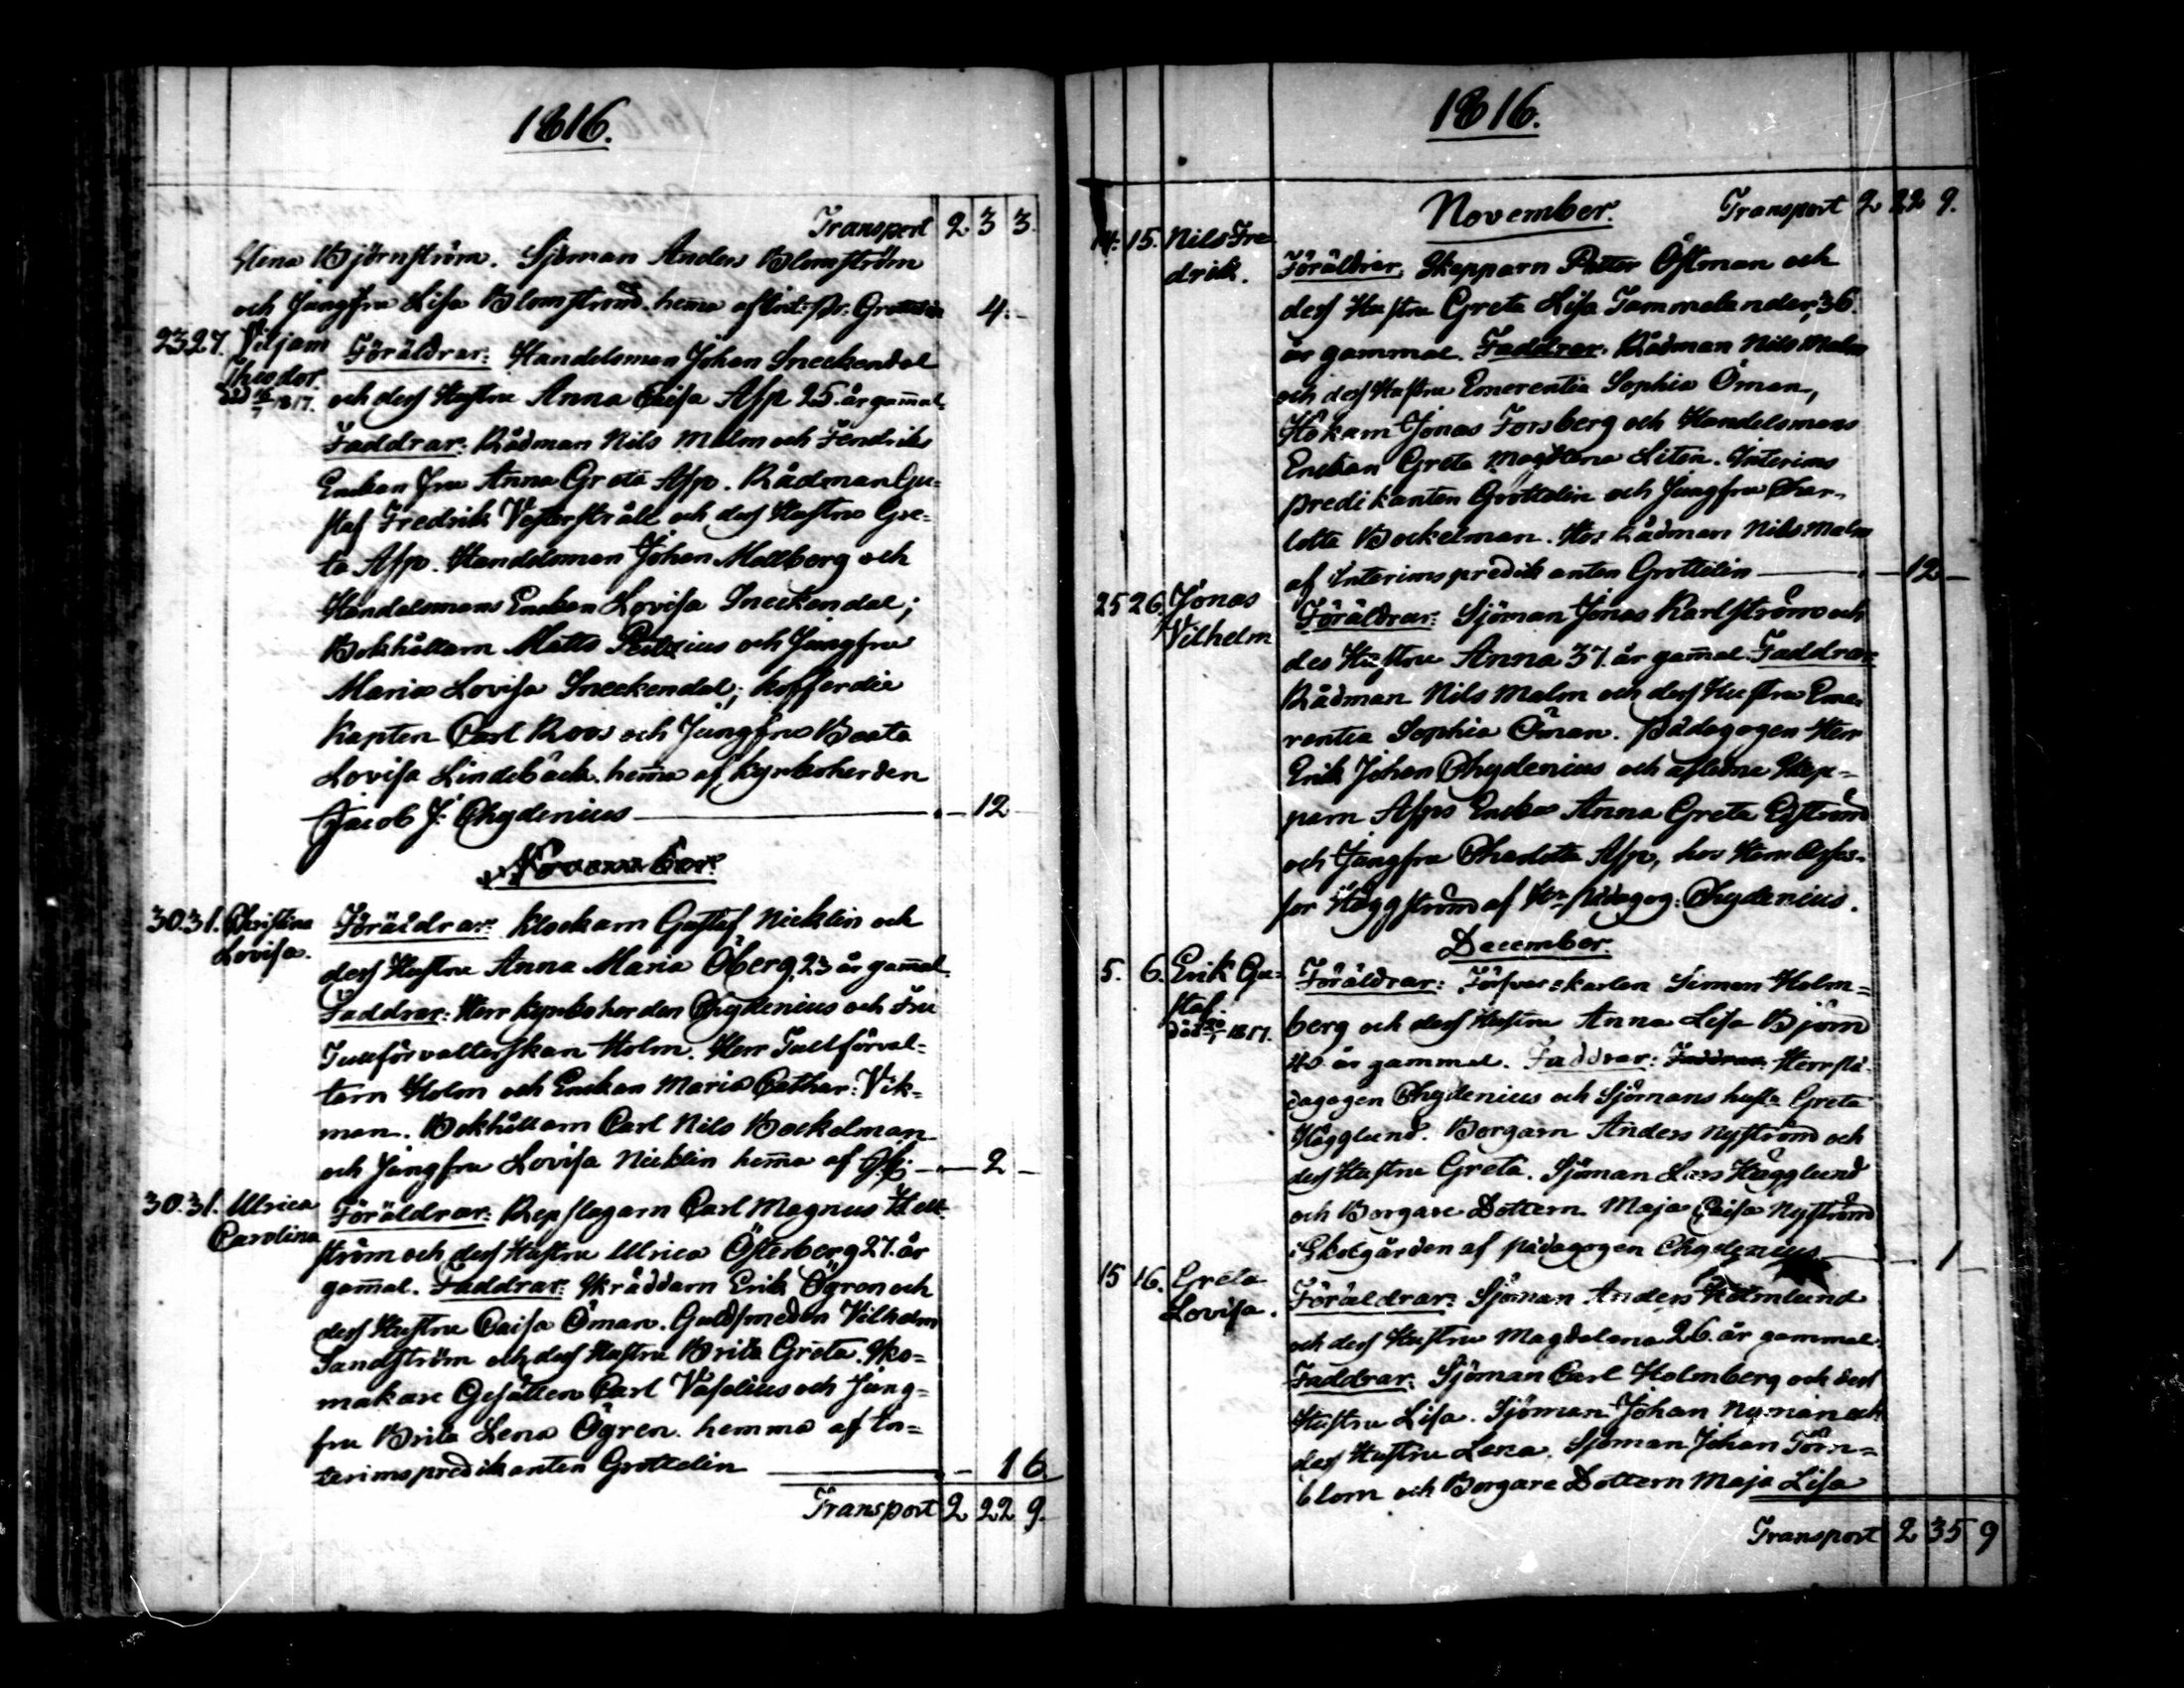 1816.
Transport 2 3 3.
Stena Björnström. Sjöman Anders Blomström
och Jungfru Lisa Blomström. hem̄a af Int: Pr: Grottelin 4.-
23 27. Viljam Theodor. död 16/7 1817.
Föräldrar: Handelsman Johan Sneckendal
och dess Hustru Anna Caisa Asp 25. år gam̄al.
Faddrar: Rådman Nils Malm och Fendriks
Enckan Fru Anna Greta Asp. Rådman Gu=
staf Fredrik Vesterstråle och dess Hustru Gre=
ta Asp. Handelsman Johan Mellberg och
Handelsmans Enckan Lovisa Sneckendal;
Bokhållarn Matts och Jungfru
Maria Lovisa Sneckendal; Kofferdie
Kapten Carl Roos och Jungfru Beata
Lovisa Lindebäck. hem̄a af Kyrkoherden
Jacob J: Chydenius - 12
November.
30. 31. Christina Lovisa.
Föräldrar: Klockarn Gustaf Nicklin och
dess Hustru Anna Maria Öberg, 23 år gam̄al.
Faddrar: Herr Kyrkoherden Chydenius och Fru
Tullförvalterskan Holm. Herr Tullförval=
tern Holm och Enckan Maria Cathar: Vik=
man. Bokhållarn Carl Nils Bockelman
och Jungfru Lovisa Nicklin hem̄a af - 2 -
30. 31. Ulrica Carolina
Föräldrar: Repslagarn Carl Magnus Hell=
ström och dess Hustru Ulrica Österberg 27. år
gam̄al. Faddrar: Skräddarn Erik Ögren och
dess Hustru Caisa Öman. Guldsmeden Vilhelm
Sandström och dess Hustru Brita Greta. Sko=
makare Gesällen Carl Vaselius och Jung=
fru Brita Lena Ögren. hemma af In=
terimspredikanten Grottelin - 1 6
Transport 2 22 9.
1816.
November. Transport 2 22 9.
14. 15. Nils Fre drik.
Föräldrar: Skepparn Petter Östman och
dess Hustru Greta Lisa Tammelander, 36.
år gammal. Faddrar: Rådman Nils Malm
och dess Hustru Emerentia Sophia Öman,
Hökarn Jonas Forsberg och Handelsmans
Enckan Greta Magdlena Liten. Interims
predikanten Grottelin och Jungfru Char=
lotta Bockelman. Hos Rådman Nils Malm
af Interimspredikanten Grottelin - 12 -
25 26. Jonas Vilhelm
Föräldrar: Sjöman Jonas Karlström och
des Hustru Anna 37. år gam̄al. Faddrar:
Rådman Nils Malm och dess Hustru Eme=
rentia Sophia Öman. Pädagogen Herr
Erik Johan Chydenius och aflidne Skep=
parn Asps Encka Anna Greta Edström
och Jungfru Charlotta Asp, hos Herr Asses=
sor Häggström af Hr Pädagog: Chydenius.
December.
5. 6. Erik Gu= staf. död 1817.
Föräldrar: Förs Simon Holm=
berg och dess Hustru Anna Lisa Björn
40 år gammal. Faddrar: Faddrar: Herr Pä=
dagogen Chydenius och Sjömans hust: Greta
Hägglund. Borgarn Anders Nyström och
dess Hustru Greta. Sjöman Lars Hägglund
och Borgare Dottern Maja Caisa Nyström
i Skolgården af pädagogen Chydenius - 1 -
15 16. Greta Lovisa.
Föräldrar: Sjöman Anders Holmlund
och dess Hustru Magdalena 26. år gammal.
Faddrar: Sjöman Carl Holmberg och dess
Hustru Lisa. Sjöman Johan Nyman och
dess Hustru Lena. Sjöman Johan Törn=
blom och Borgare Dottern Maja Lisa
Transport 2 35 9